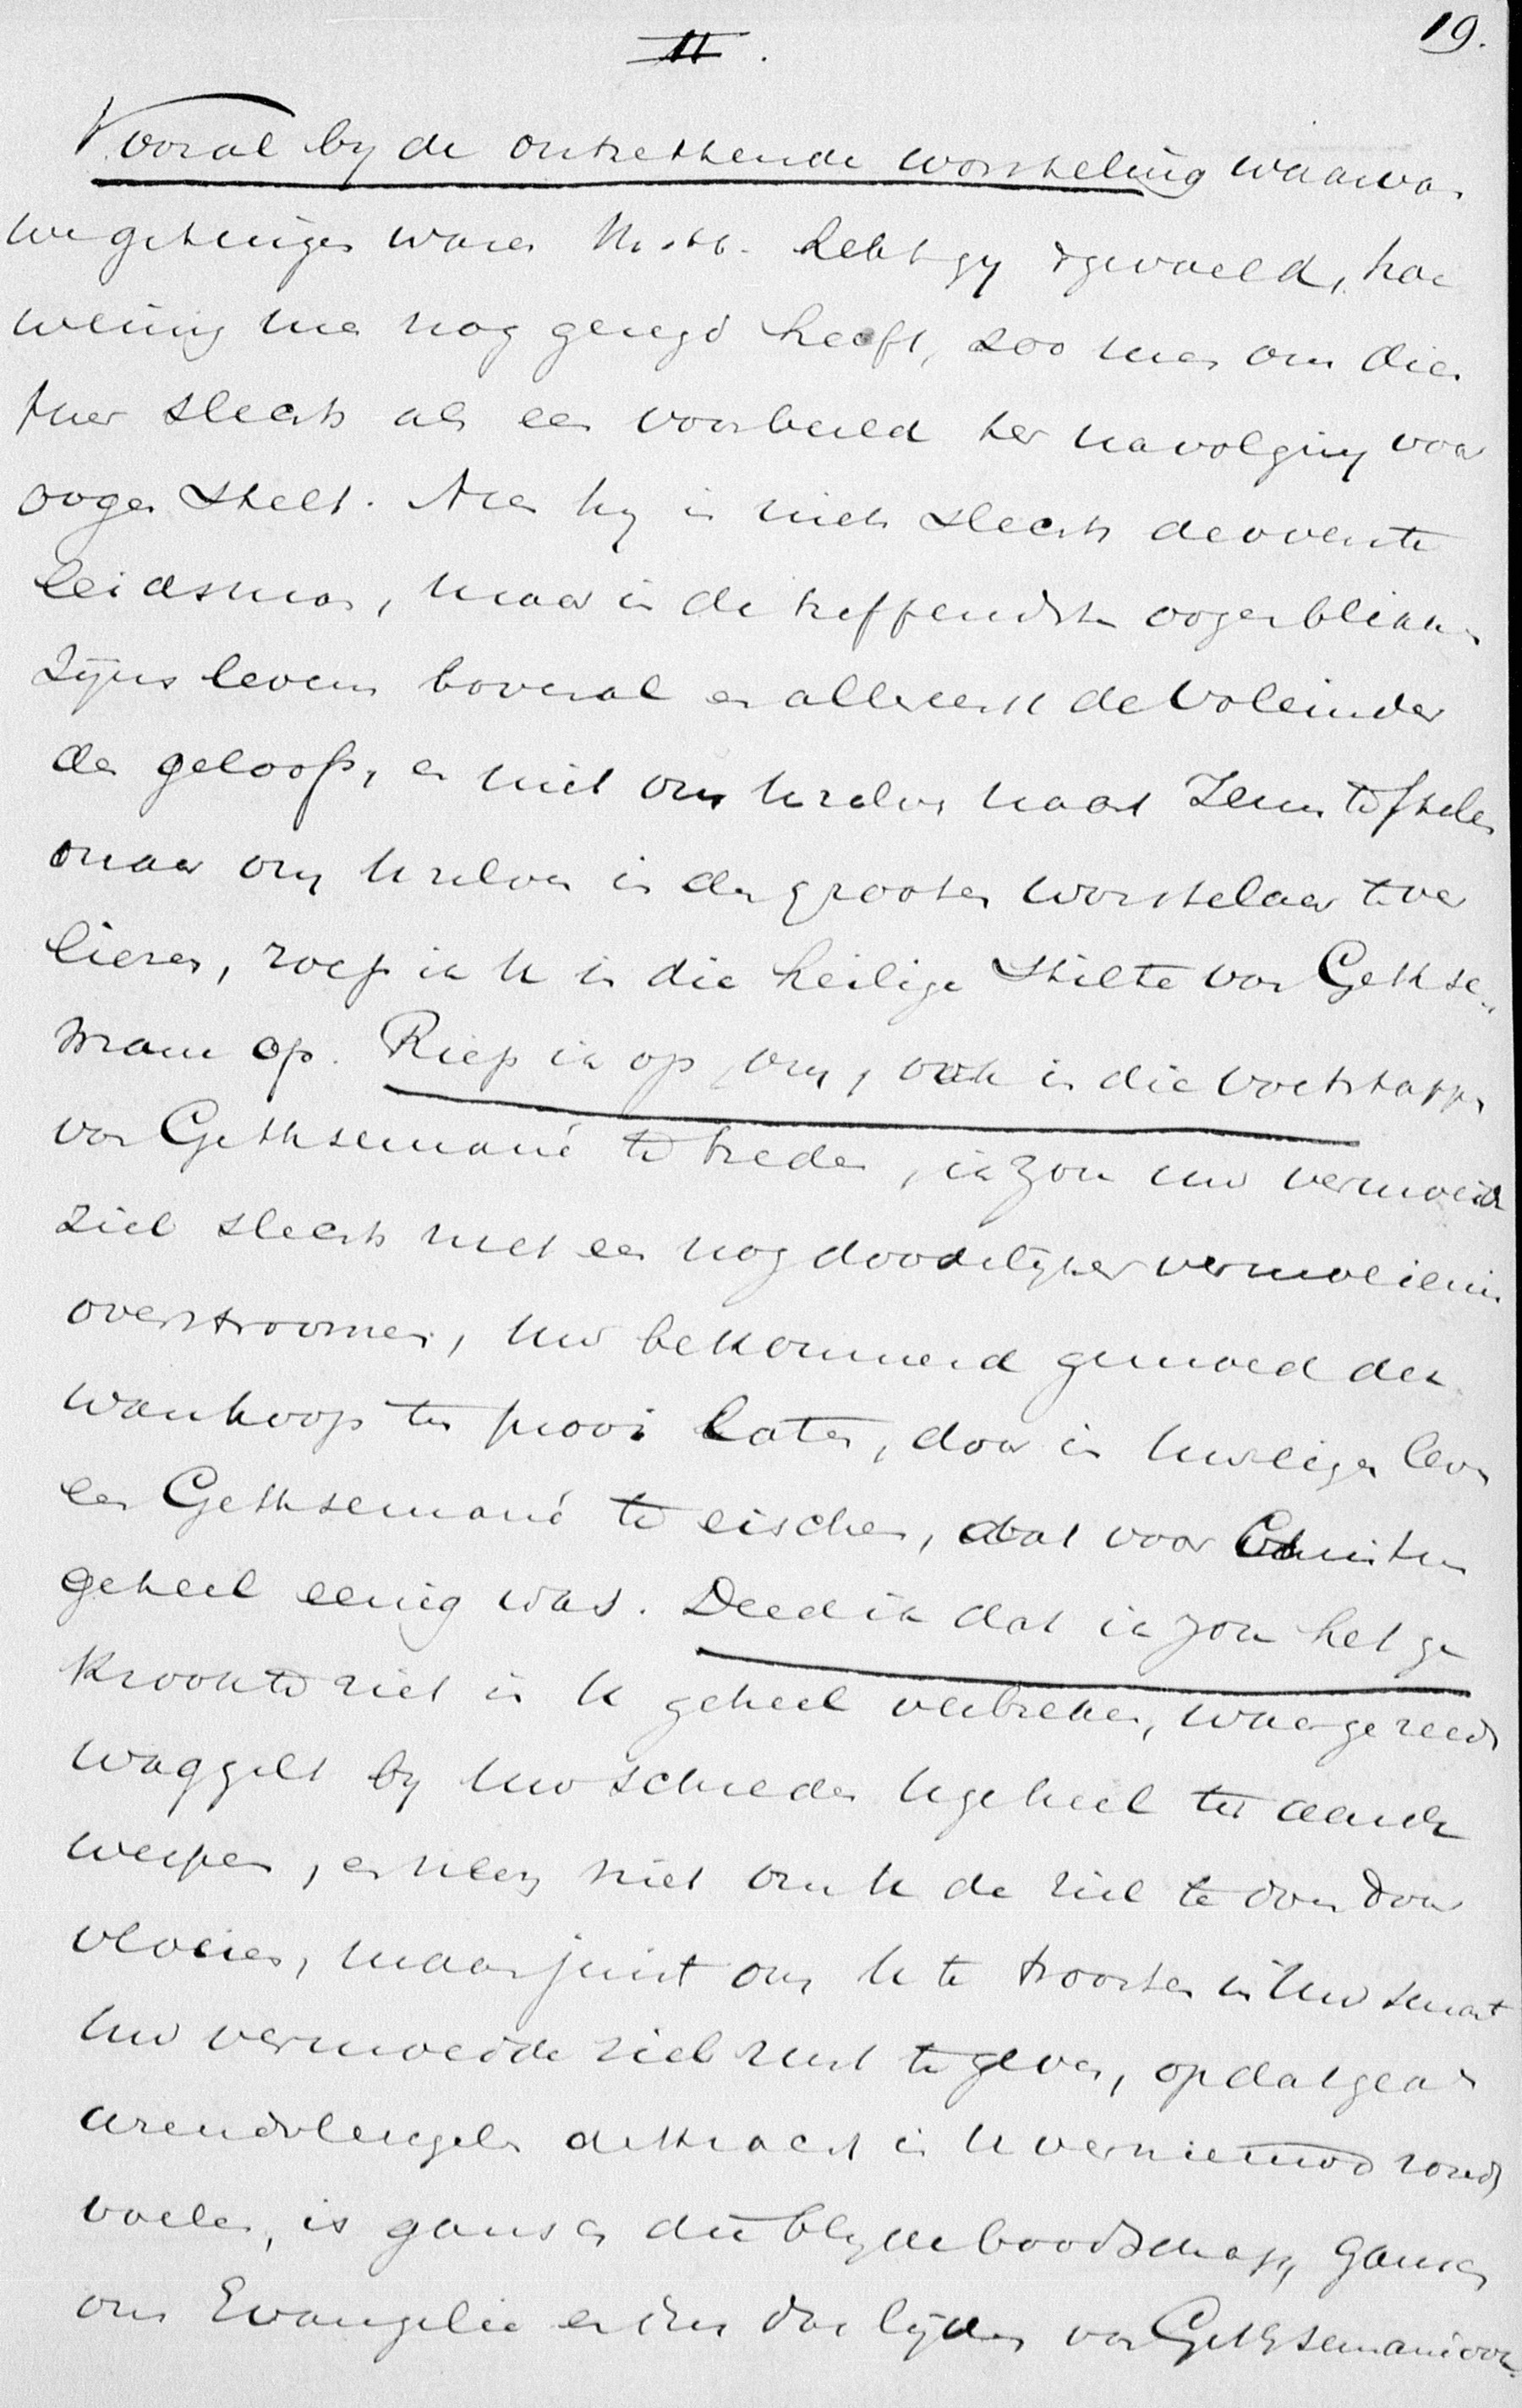 19.
II.
Vooral by de ontzettende worsteling waarvan
we getuigen waren M. HH. hebt gy 't gevoeld, hoe
weinig men nog gezegd heeft, zoo men ons dien
Heer slechts als een voorbeeld ter navolging voor
oogen stelt. Neen hy is niet slechts de overste
leidsman, maar in de treffendste oogenblikken
Zijns levens bovenal en allereerst de Voleinder
des geloofs, en niet om U zelven naast Jezus te stellen
maar om U zelven in den grooten worstelaar te ver
liezen, roep ik U in die heilige stilte van Gethse-
mané op. Riep ik op, om, ook in die voetstappen
van Gethsemané te treden, ik zou uw vermoeide
ziel slechts met een nog doodelijker vermoeienis
overstroomen, Uw bekommerd gemoed den
wanhoop ten prooi laten, door in Uw eigen leven
een Gethsemané te eischen, dat voor Christus
geheel eenig was. Deed ik dat ik zou het ge
krookte riet in U geheel verbreken, waar ge reeds
waggelt by Uw schreden U geheel ter aarde
werpen, en neen niet om U de ziel te doen door
vloeien, maar juist om U te troosten in Uw smart
Uw vermoeide ziel rust te geven, opdat ge als
arendsvleugelen de kracht in U vernieuwd zoudt
voelen, is gansch die blyde boodschap, gansch
ons Evangelie en dus dat lijden van Gethsemané ook